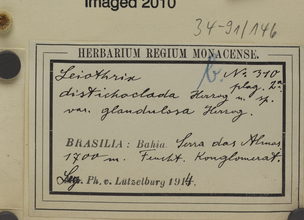 Imaged 2010
34-91/146
HERBARIUM REGIUM MONACENSE.
Leiothrix b. No. 310
distichoclada Herzog n. sp. plag. 2a
var. glandulosa Herzog.
BRASILIA: Bahia. Serra das Almas
1700 m. Feucht. Konglomerat.
Leg. Ph. v. Lützelburg 1914.